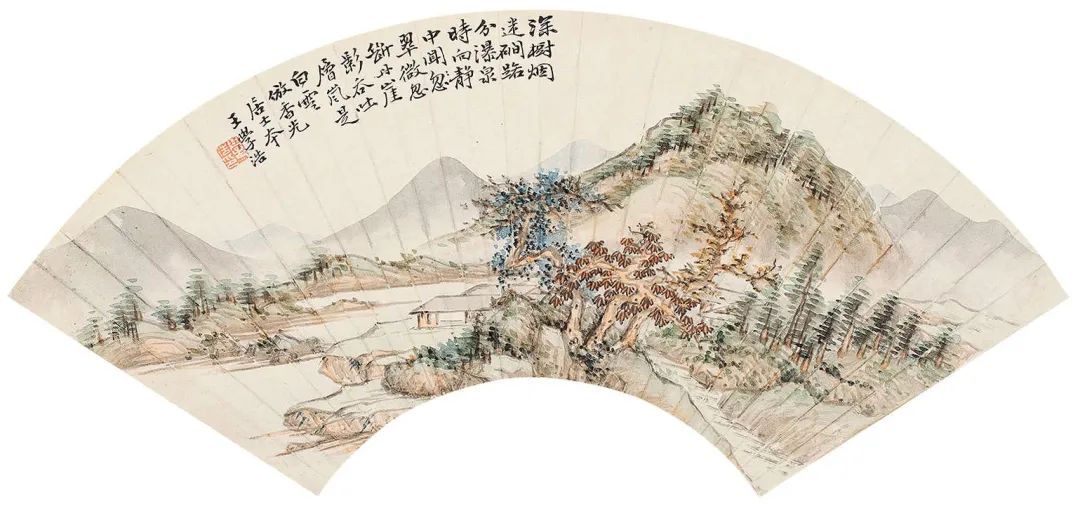 深樹烟
迷磵路
分瀑泉
時向靜
中聞忽
翠微忽
斷丹崖
影谷吐
層嵐是
白雲
倣香光
居士本
王學浩